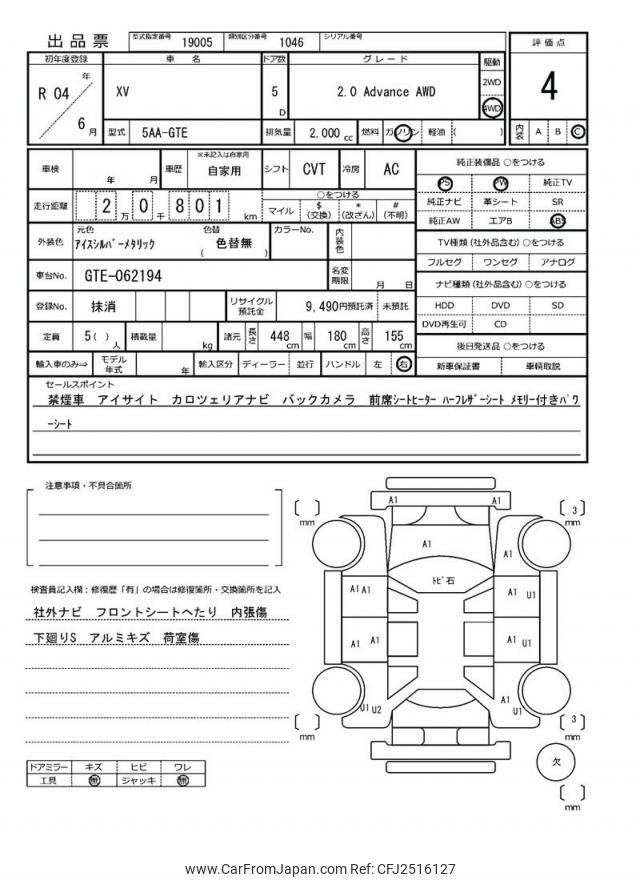 出品票 型式指定番号 19005 類別区分番号 1046 シリアル番号
初年度登録 車名 ドア数 グレード 駆動 評価点
R 04 年 XV 5 D 2.0 Advance AWD 2WD 4
6 月 4WD
型式 5AA-GTE 排気量 2,000 cc 燃料 ガソリン 軽油 ( ) 内装 A B C
車検 年 月 車歴 ※未記入は自家用 自家用 シフト CVT 冷房 AC 純正装備品 ○をつける
PS PW 純正TV
走行距離 2 万 0 千 8 0 1 km ○をつける 純正ナビ 革シート SR
マイル $ (交換) * (改ざん) # (不明) 純正AW エアB ABS
外装色 元色 アイスシルバーメタリック 色替 色替無 ( ) カラーNo. 内装色 TV種類 (社外品含む) ○をつける
フルセグ ワンセグ アナログ
車台No. GTE-062194 名変期限 月 日 ナビ種類 (社外品含む) ○をつける
登録No. 抹消 リサイクル預託金 9,490円預託済 未預託 HDD DVD SD
DVD再生可 CD
定員 5 ( ) 人 積載量 kg 諸元 長さ 448 cm 幅 180 cm 高さ 155 cm 後日発送品 ○をつける
輸入車のみ⇒ モデル年式 年 輸入区分 ディーラー 並行 ハンドル 左 右 新車保証書 車輌取説
セールスポイント
禁煙車 アイサイト カロツェリアナビ バックカメラ 前席シートヒーター ハーフレザーシート メモリー付きパワ
ーシート
注意事項・不具合箇所
検査員記入欄：修復歴「有」の場合は修復箇所・交換箇所を記入
社外ナビ フロントシートへたり 内張傷
下廻りS アルミキズ 荷室傷
ドアミラー キズ ヒビ ワレ
工具 無 ジャッキ 無
A1 A1
[ ] mm [ 3 ] mm
A1 A1
トビ石
A1 A1 A1 U1
A1 A1 A1 U1
U1 U2 A1 U1
[ ] mm [ 3 ] mm
欠
[ ] mm
www.CarFromJapan.com Ref: CFJ2516127